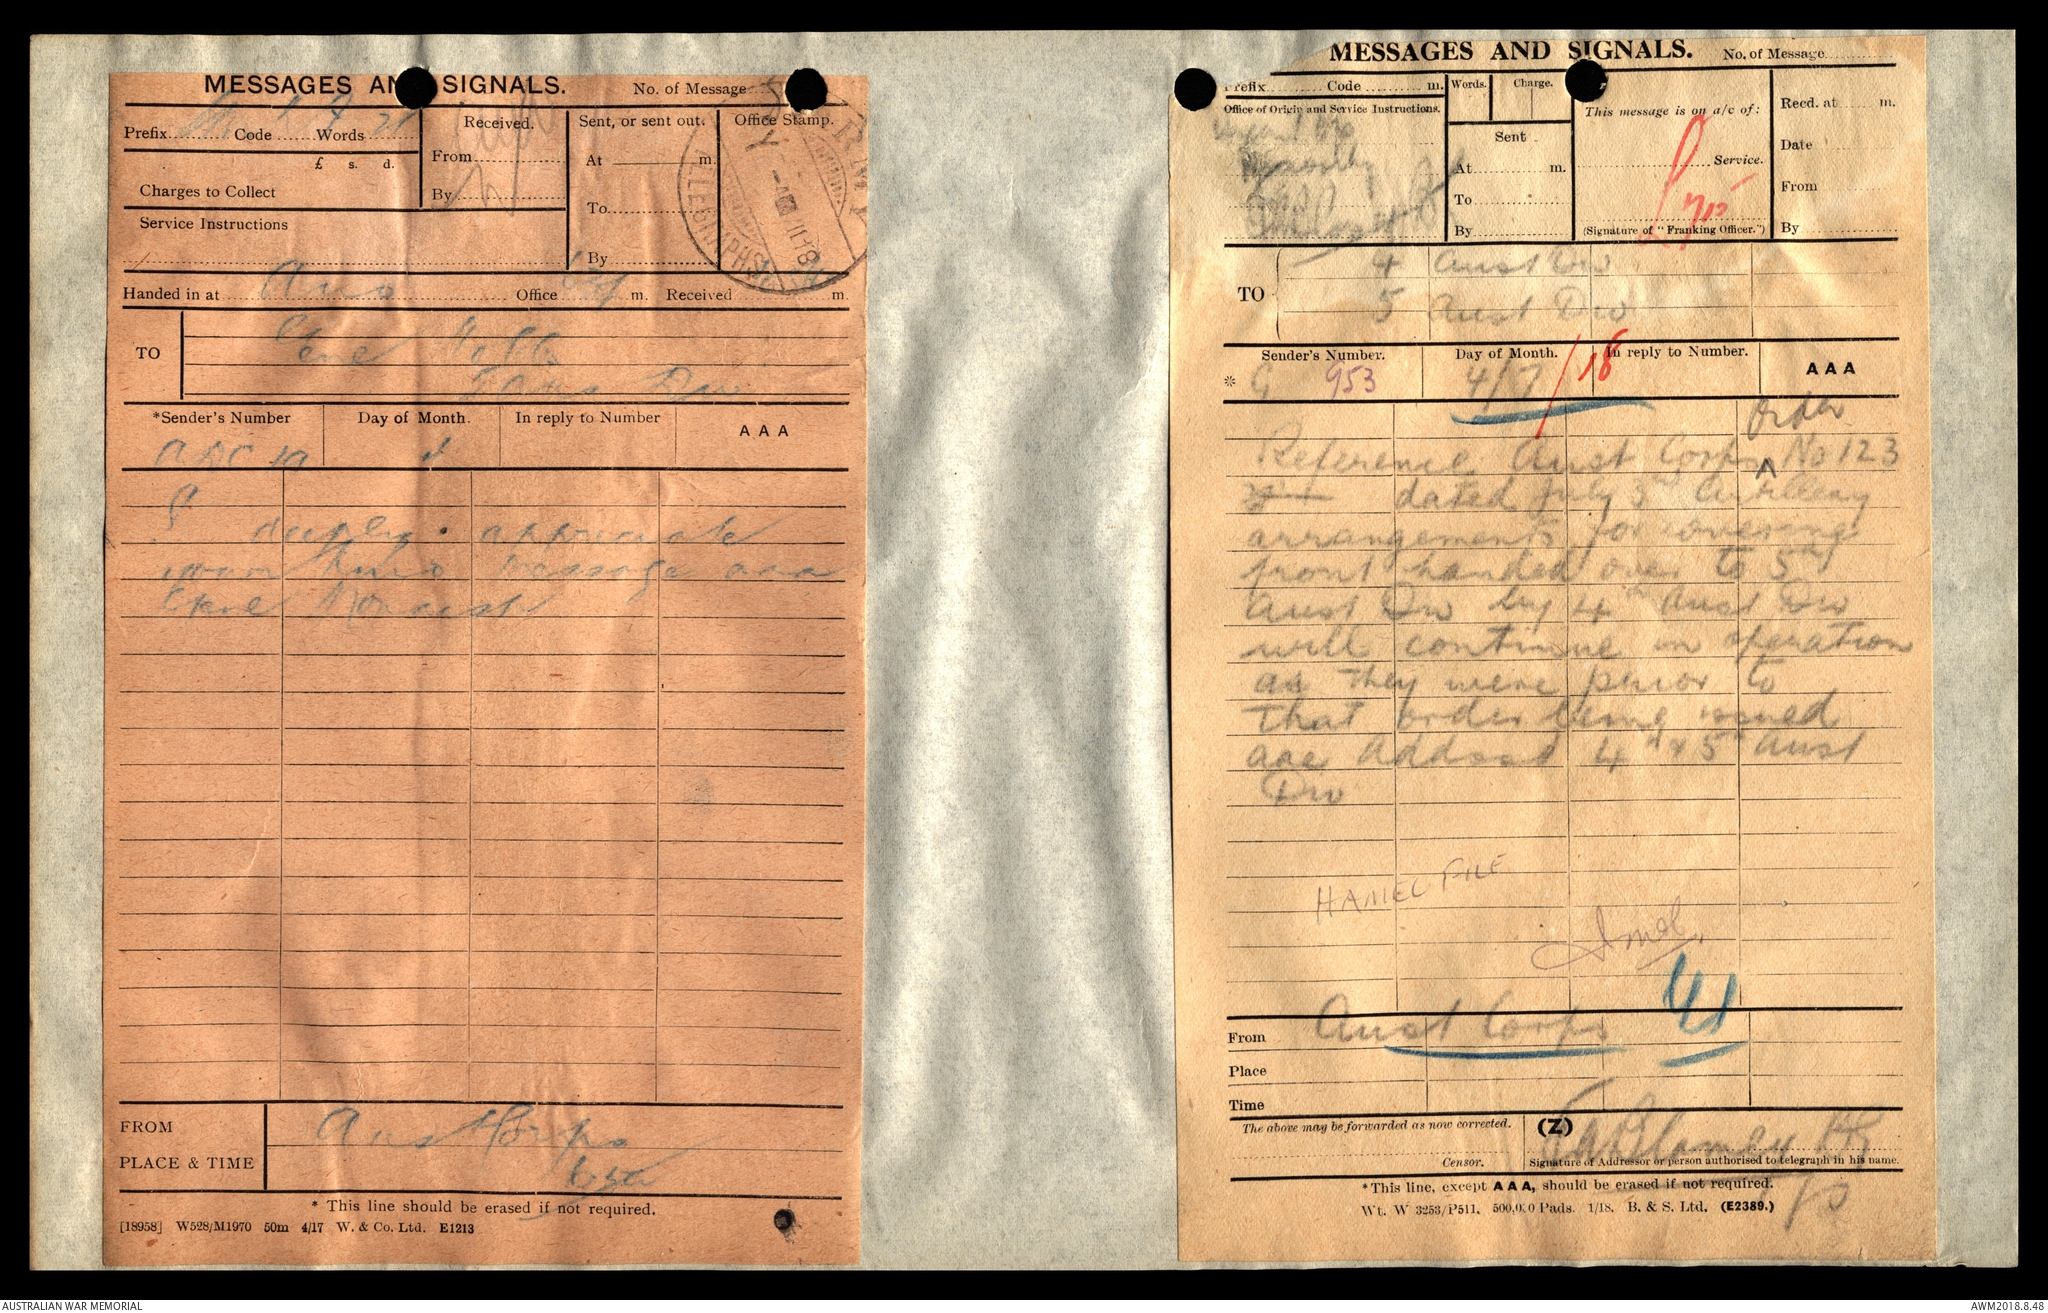 MESSAGES AND SIGNALS.
No. of Message
Prefix Code Words
£ s. d.
Charges to Collect
Service Instructions
Received.
From
By
Sent, or sent out.
At m.
To
By
Office Stamp.
ARMY
TELEGRAPHS
Handed in at Aus Office m. Received m.
TO
Genl Hobbs
5 Aus Div
*Sender's Number Day of Month. In reply to Number AAA
4
I deeply appreciate
your kind message aaa
Genl Monash
FROM
PLACE & TIME
Aust Corps
* This line should be erased if not required.
[18958] W528/M1970 50m 4/17 W. & Co. Ltd. E1213
MESSAGES AND SIGNALS.
No. of Message
Prefix Code m.
Words. Charge.
Office of Origin and Service Instructions.
Sent
At m.
To
By
This message is on a/c of:
Service.
(Signature of "Franking Officer.")
Recd. at m.
Date
From
By
TO
4 Aust Div
5 Aust Div
Sender's Number. Day of Month. In reply to Number. AAA
* G 953 4/7/18
Order
Reference Aust Corps ^ No 123
dated July 3rd Artillery
arrangements for covering
front handed over to 5th
Aust Div by 4th Aust Div
will continue in operation
as they were prior to
that order being issued
aaa Addssd 4th & 5th Aust
Div
HAMEL FILE
From Aust Corps
Place
Time
The above may be forwarded as now corrected. (Z)
TA Blamey BG
GS
Censor. Signature of Addressor or person authorised to telegraph in his name.
*This line, except AAA, should be erased if not required.
Wt. W 3253/P511. 500,000 Pads. 1/18. B. & S. Ltd. (E2389.)
AUSTRALIAN WAR MEMORIAL
AWM2018.8.48